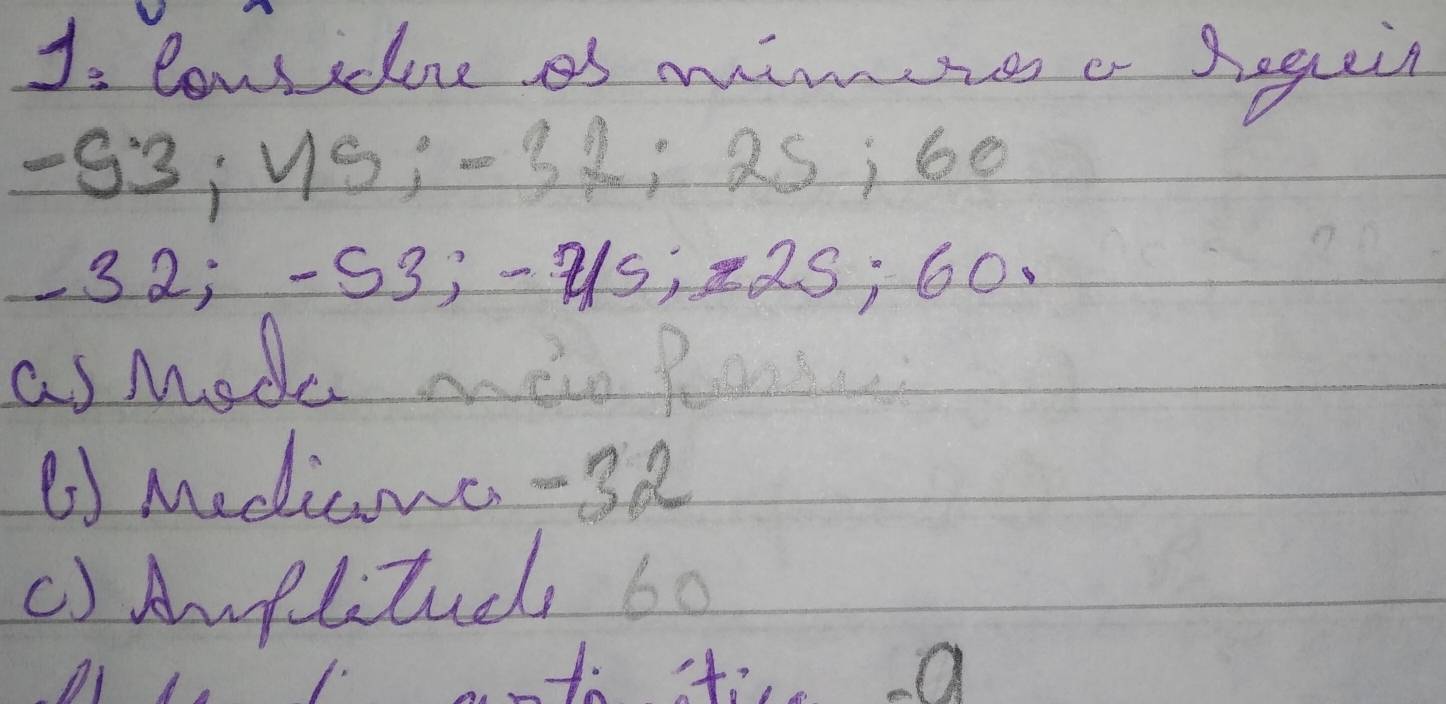 1: Considere os números a seguir
-53; 45; -32; 25; 60
-32; -53; -45; -25; 60.
a) Moda não Possui
b) Mediana -32
c) Amplitude 60
aritmética -9